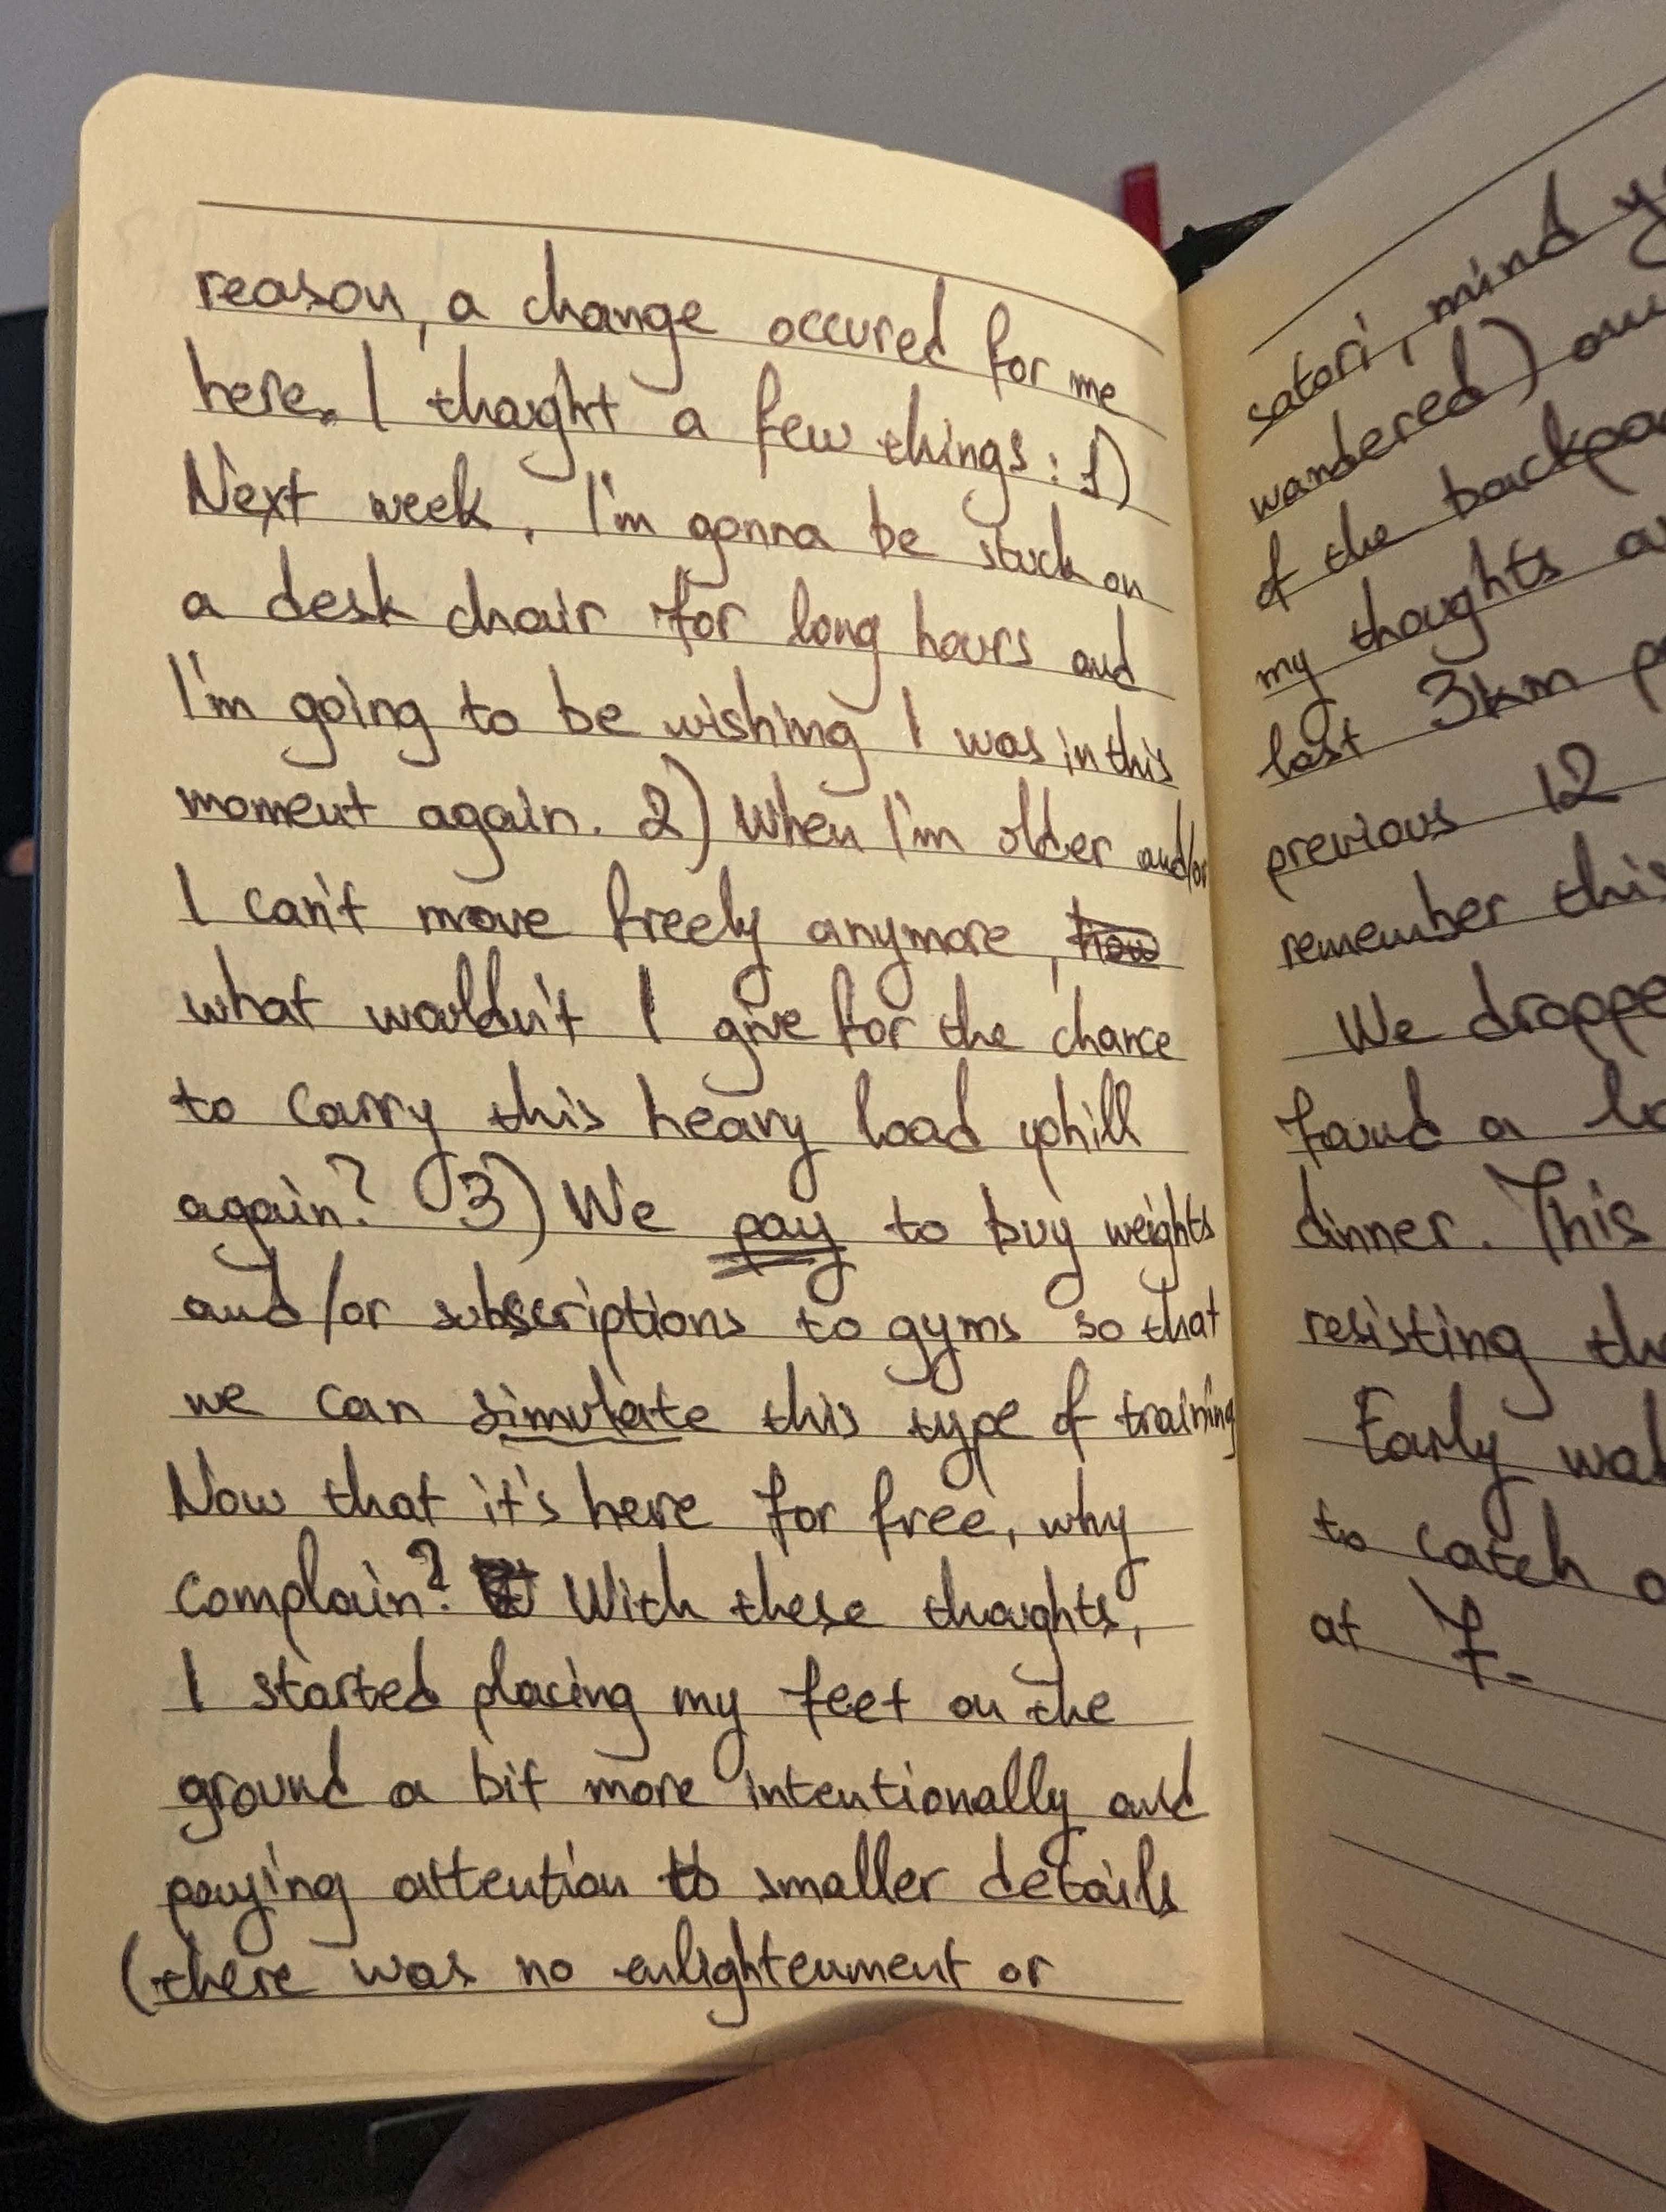 reason, a change occured for me
here. I thought a few things: 1)
Next week, I'm gonna be stuck on
a desk chair for long hours and
I'm going to be wishing I was in this
moment again. 2) When I'm older and/or
I can't move freely anymore, how
what wouldn't I give for the chance
to carry this heavy load uphill
again? 3) We pay to buy weights
and/or subscriptions to gyms so that
we can simulate this type of training
Now that it's here for free, why
complain? With these thoughts,
I started placing my feet on the
ground a bit more intentionally and
paying attention to smaller details
(there was no enlightenment or
satori, mind
wandered)
of the
my thoughts
last 3km
previous 12
remember this
We
found a
dinner. This
resisting
Early
to catch
at 7.